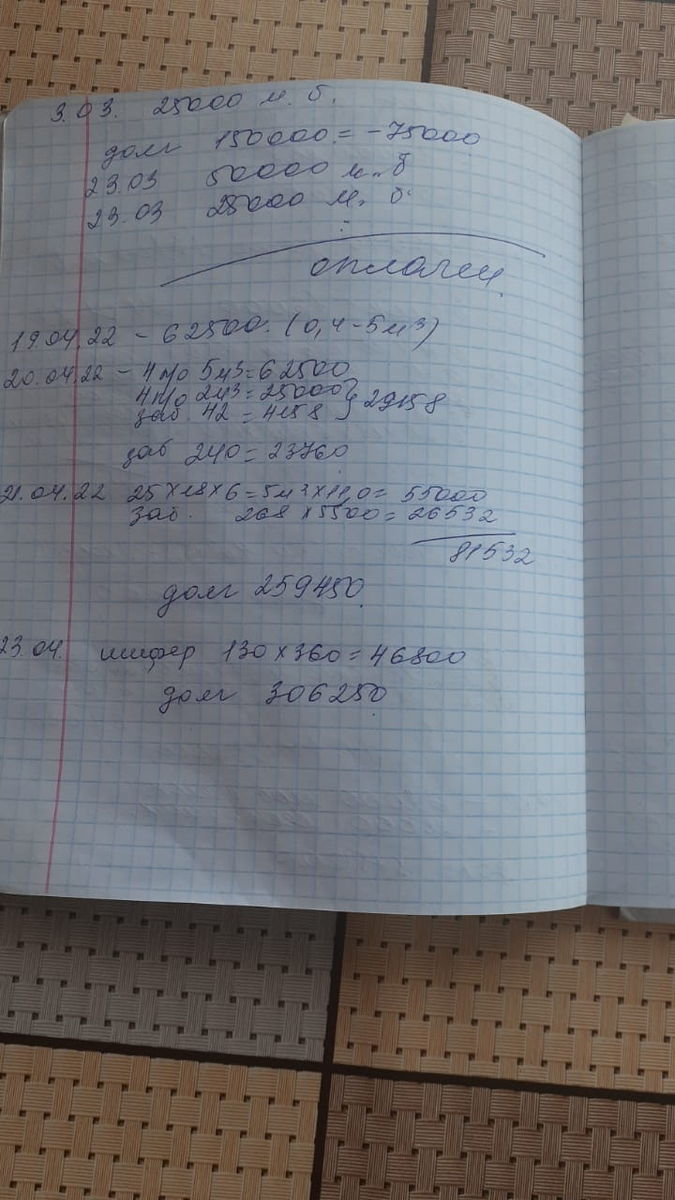 3.03. 25000 м. б.
долг 150000 = -75000
23.03 50000 м. б
23.03 25000 м. б.
оплачен
19.04.22 - 62500. (0,4-5м³)
20.04.22 - 4 по 5м³ = 62500
4 по 2м³ = 25000 } 29158
заб. 42 = 4158
заб 240 = 23760
21.04.22 25×18×6 = 5м³×110 = 55000
заб. 268 × 5500 = 26532
81532
долг 259450.
23.04. шифер 130 × 360 = 46800
долг 306250